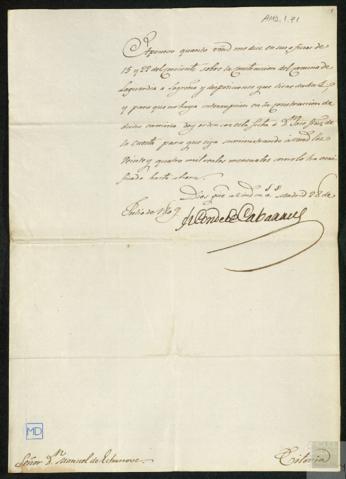 AMD, 1.41
Apruevo quanto vmd me dice en sus oficios de
15 y 22 del corriente sobre la continuacion del camino de
Laguardia a Logroño y
y para que no haya interrupcion en la construccion de
dicho camino doy orden con esta fecha a Dn. Jose
la Cuesta para que siga suministrando a vmd los
veinte y quatro mil reales mensuales como lo ha
hasta ahora.
Dios gue. a vmd m. a. Madrid 28 de
Julio de 1809.
El Conde de Cabarrus
MD
Señor Dn. Manuel de Echanove.
Vitoria